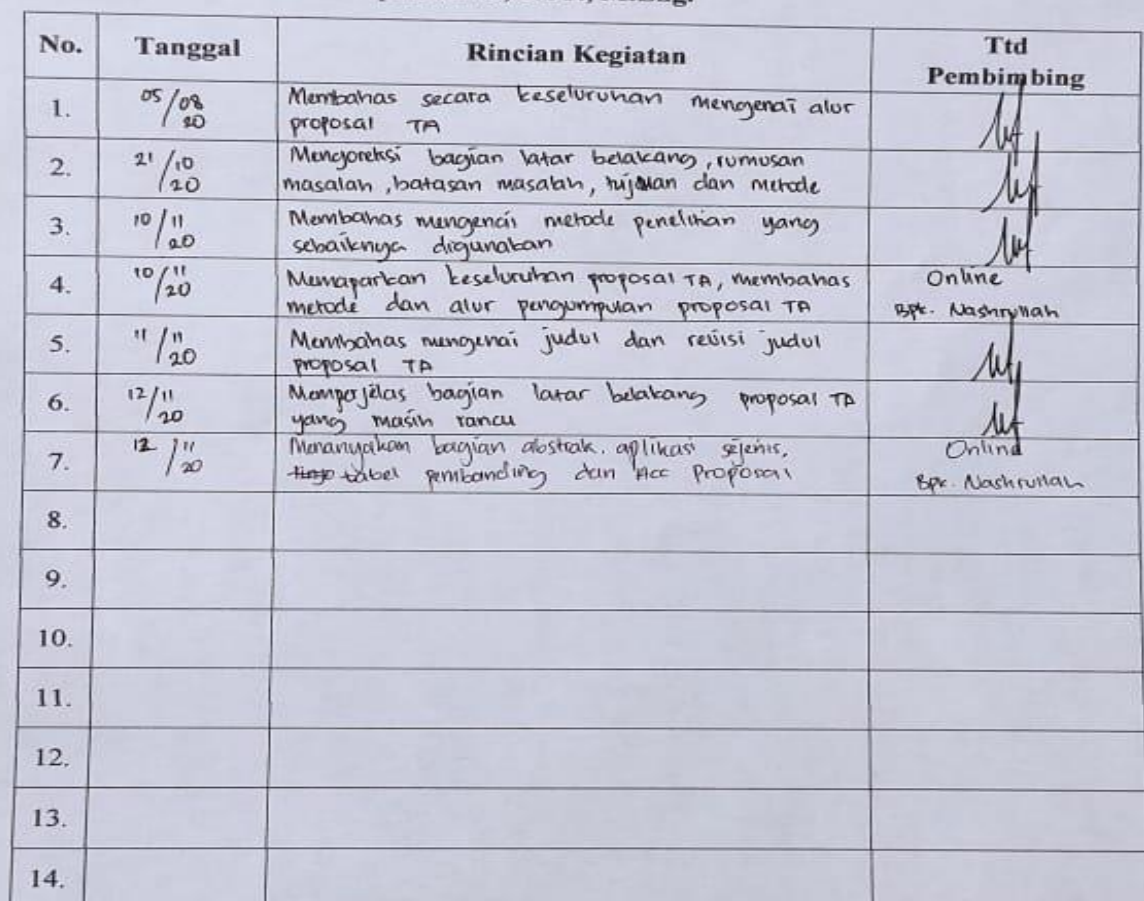 No. Tanggal Rincian Kegiatan Ttd
Pembimbing
1. 05/08 Membahas secara keseluruhan mengenai alur
20 proposal TA
2. 21/10 Mengoreksi bagian latar belakang, rumusan
20 masalah, batasan masalah, tujuan dan metode
3. 10/11 Membahas mengenai metode penelitian yang
20 sebaiknya digunakan
4. 10/11 Memaparkan keseluruhan proposal TA, membahas Online
20 metode dan alur pengumpulan proposal TA Bpk. Nashrullah
5. 11/11 Membahas mengenai judul dan revisi judul
20 proposal TA
6. 12/11 Memperjelas bagian latar belakang proposal TA
20 yang masih rancu
7. 12/11 Menanyakan bagian abstrak, aplikasi sejenis, Online
20 tabel pembanding dan Acc Proposal Bpk. Nashrullah
8.
9.
10.
11.
12.
13.
14.